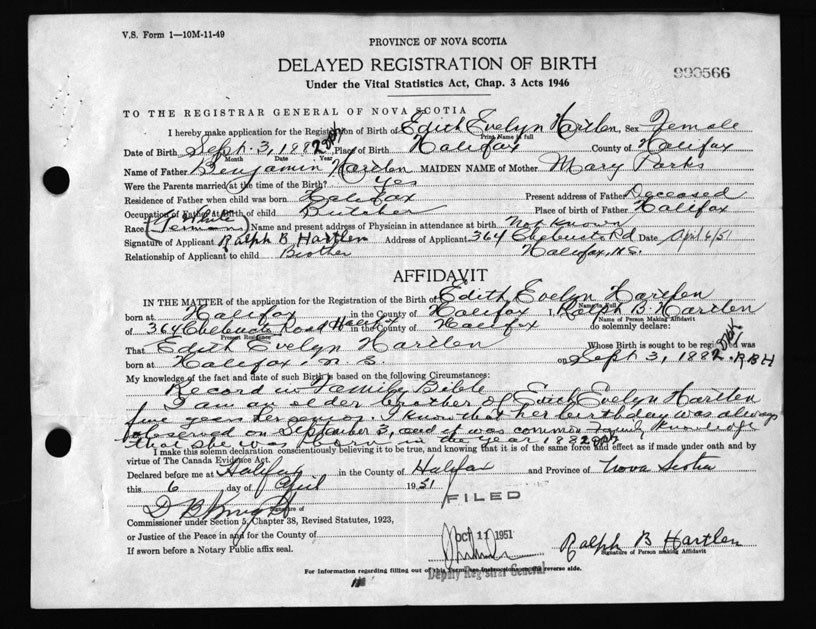 V.S. Form 1—10M-11-49
PROVINCE OF NOVA SCOTIA
DELAYED REGISTRATION OF BIRTH
Under the Vital Statistics Act, Chap. 3 Acts 1946
990566
TO THE REGISTRAR GENERAL OF NOVA SCOTIA
I hereby make application for the Registration of Birth of Edith Evelyn Hartlen, Sex Female
Print Name in full
Date of Birth Sept. 3, 1882 Place of Birth Halifax County of Halifax
Month Date Year
Name of Father Benjamin Hartlen MAIDEN NAME of Mother Mary Parks
Were the Parents married at the time of the Birth? Yes
Residence of Father when child was born Halifax Present address of Father Deceased
Occupation of Father at Birth of child Butcher Place of birth of Father Halifax
White
Race (German) Name and present address of Physician in attendance at birth Not Known
Signature of Applicant Ralph B Hartlen Address of Applicant 364 Chebucto Rd Date April 6/51
Relationship of Applicant to child Brother Halifax, N.S.
AFFIDAVIT
IN THE MATTER of the application for the Registration of the Birth of Edith Evelyn Hartlen
Name in Full
born at Halifax in the County of Halifax I, Ralph B Hartlen
Name of Person Making Affidavit
of 364 Chebucto Road Halifax in the County of Halifax do solemnly declare:
Present Residence
That Edith Evelyn Hartlen Whose Birth is sought to be registered was
born at Halifax, N.S. on Sept 3, 1882. RBH
My knowledge of the fact and date of such Birth is based on the following Circumstances:
Record in Family Bible
I am an older brother of Edith Evelyn Hartlen
five years her senior. I know that her birthday was always
observed on September 3, and it was common family knowledge
that she was born in the year 1882
I make this solemn declaration conscientiously believing it to be true, and knowing that it is of the same force and effect as if made under oath and by
virtue of The Canada Evidence Act.
Declared before me at Halifax in the County of Halifax and Province of Nova Scotia
this 6 day of April 1951
FILED
D B Knight
Signature of
Commissioner under Section 5, Chapter 38, Revised Statutes, 1923,
or Justice of the Peace in and for the County of
OCT 11 1951
Ralph B Hartlen
Signature of Person making Affidavit
If sworn before a Notary Public affix seal.
Deputy Registrar General
For Information regarding filling out of this Form see instructions on the reverse side.